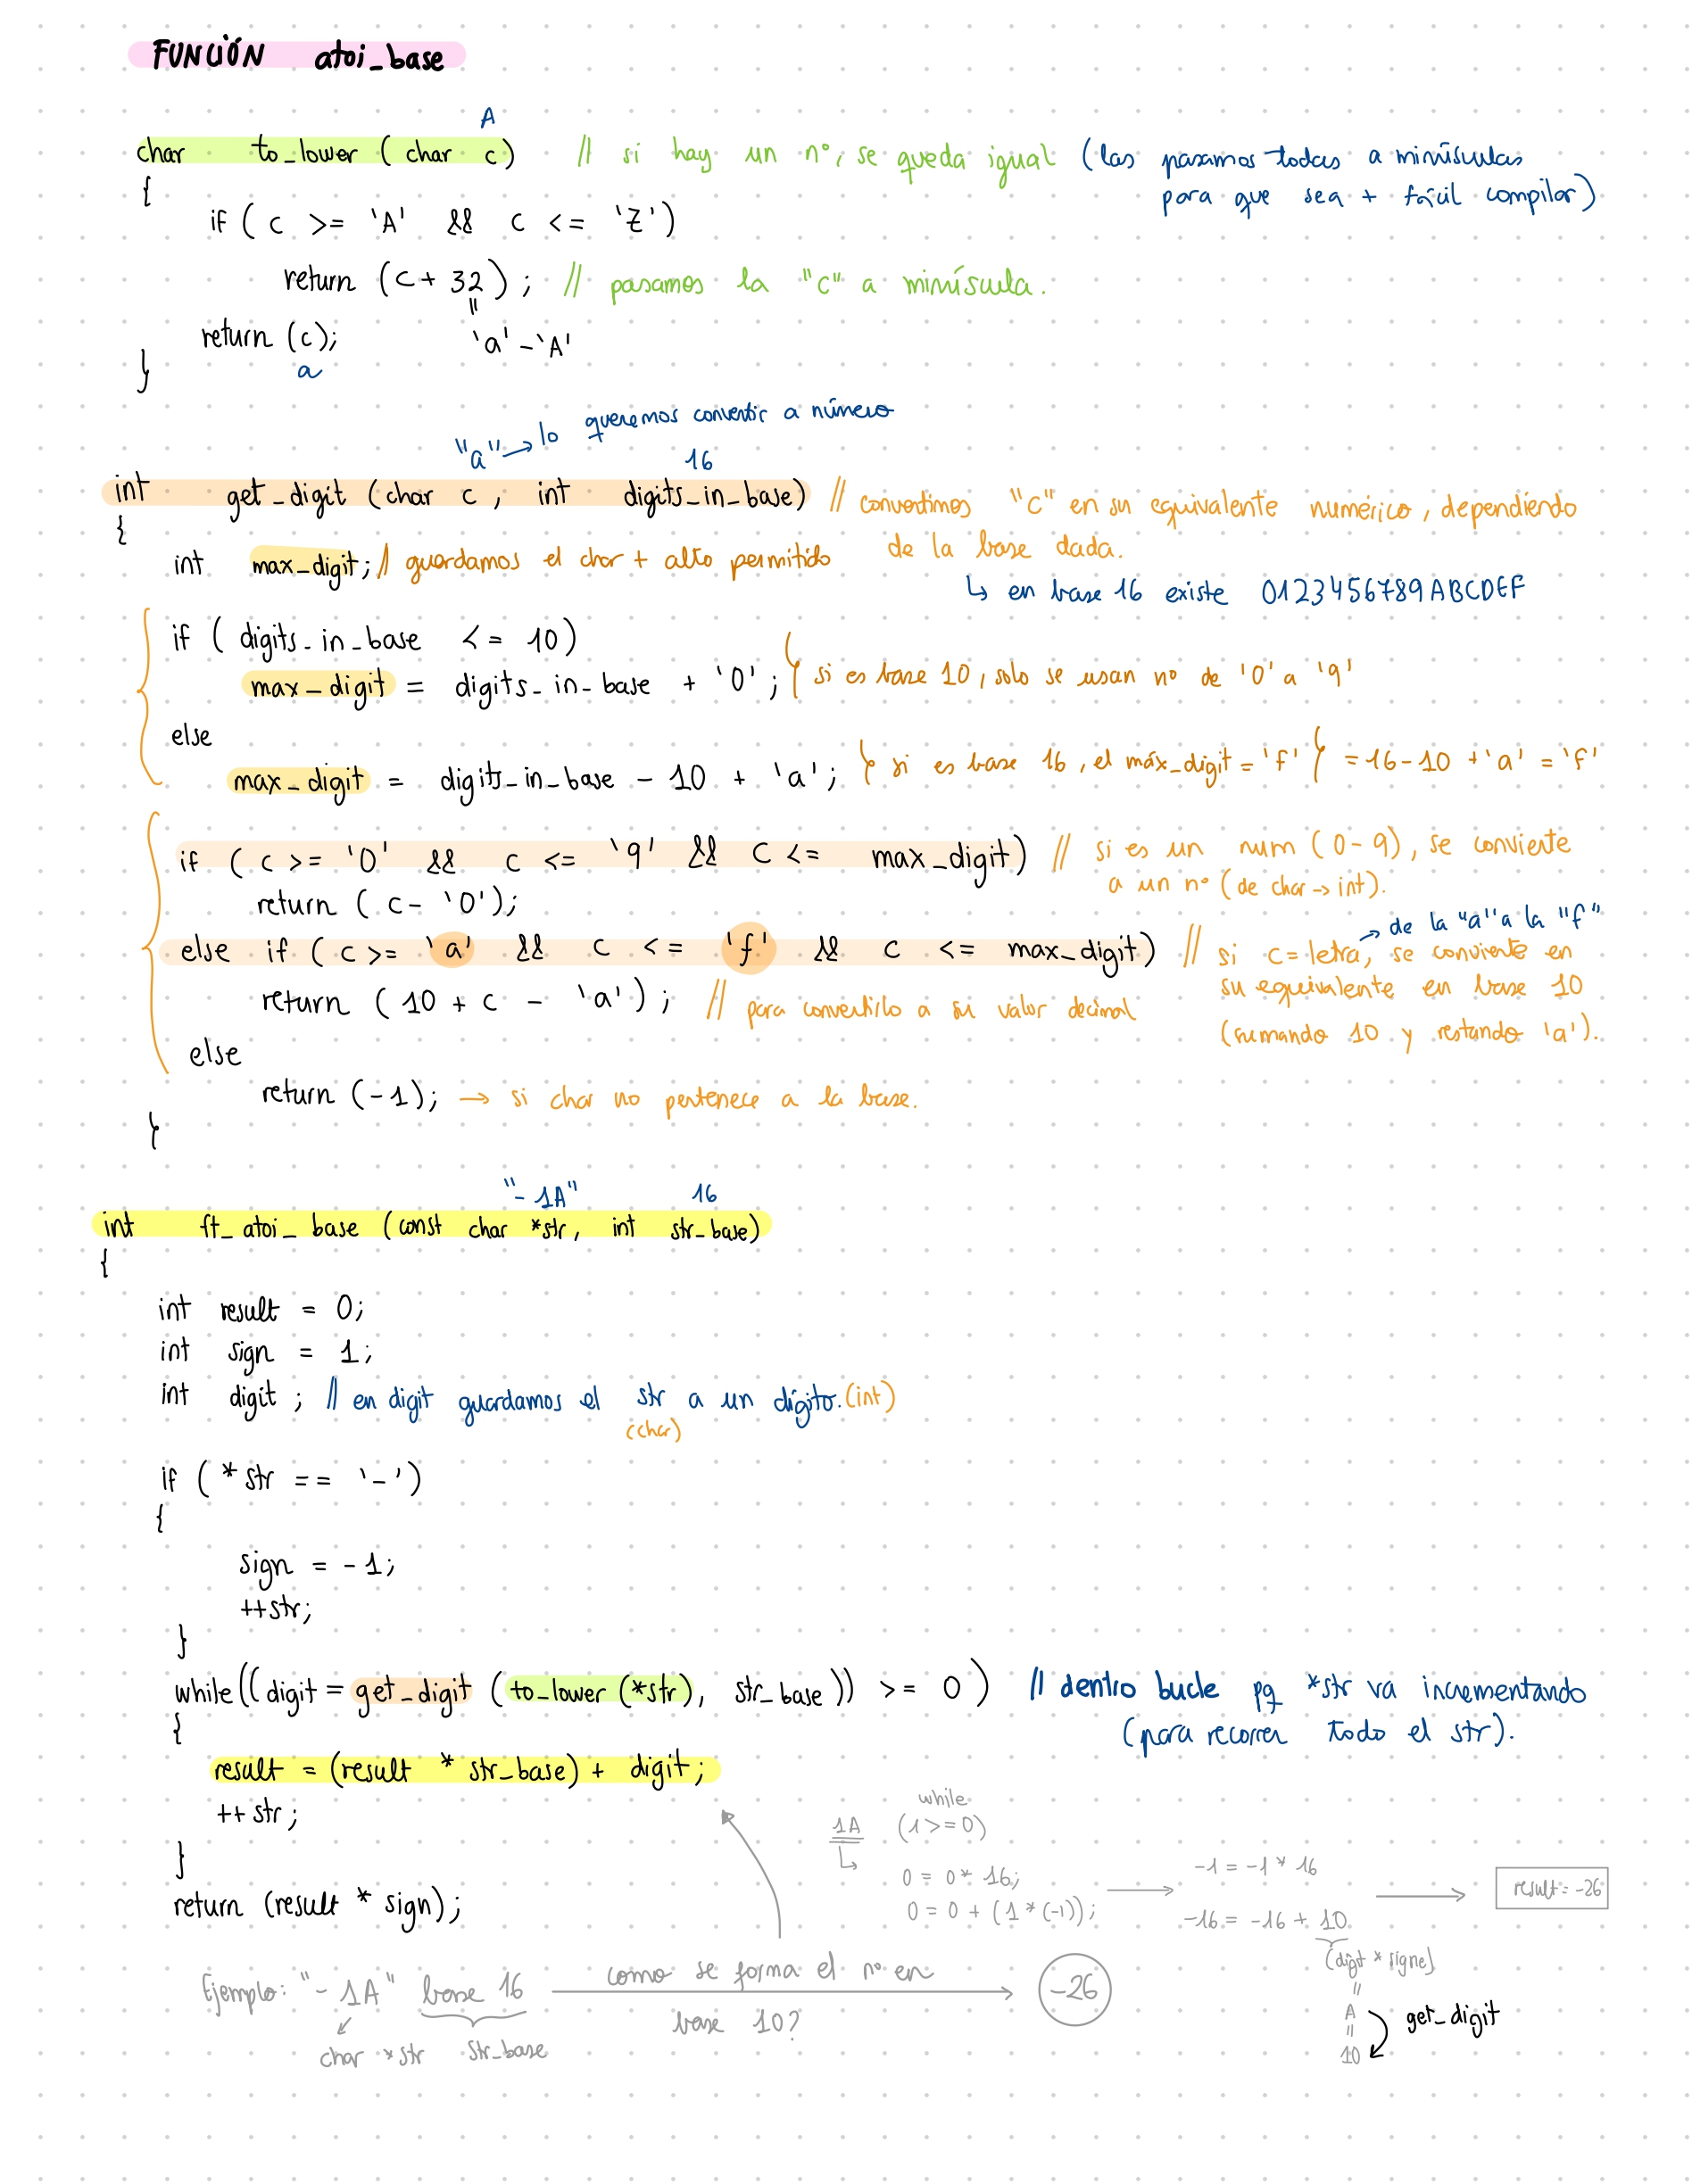 FUNCIÓN atoi_base
A
char to_lower ( char c) // si hay un nº, se queda igual (las pasamos todas a minúsculas
para que sea + fácil compilar)
{
if ( c >= 'A' && c <= 'Z')
return (c + 32) ; // pasamos la "c" a minúscula.
"
return (c); 'a' - 'A'
a
}
"a" → lo queremos convertir a número
16
int get_digit (char c , int digits_in_base) // convertimos "c" en su equivalente numérico, dependiendo
de la base dada.
{
int max_digit; // guardamos el char + alto permitido
↳ en base 16 existe 0123456789ABCDEF
if ( digits_in_base <= 10)
max_digit = digits_in_base + '0'; } si es base 10, solo se usan nº de '0' a '9'
else
max_digit = digits_in_base - 10 + 'a'; } si es base 16, el máx_digit = 'f' } = 16-10 + 'a' = 'f'
if ( c >= '0' && c <= '9' && c <= max_digit) // si es un num (0-9), se convierte
a un nº (de char -> int).
return ( c - '0');
→ de la "a" a la "f"
else if ( c >= 'a' && c <= 'f' && c <= max_digit) // si c = letra, se convierte en
su equivalente en base 10
(sumando 10 y restando 'a').
return ( 10 + c - 'a') ; // para convertirlo a su valor decimal
else
return (-1); → si char no pertenece a la base.
}
"- 1A" 16
int ft_atoi_base (const char *str, int str_base)
{
int result = 0;
int sign = 1;
int digit ; // en digit guardamos el str a un dígito. (int)
(char)
if ( *str == '-')
{
sign = - 1;
++str;
}
while(( digit = get_digit ( to_lower (*str), str_base)) >= 0 ) // dentro bucle pq *str va incrementando
(para recorrer todo el str).
{
result = (result * str_base) + digit;
++ str ;
}
return (result * sign);
while
1A (1 >= 0)
↳ 0 = 0 * 16;
0 = 0 + (1 * (-1));
→ -1 = -1 * 16
-16 = -16 + 10
(digit * signe)
"
A
"
10
get_digit
→ result = -26
Ejemplo: "- 1A" base 16 como se forma el nº en → -26
base 10?
char *str str_base